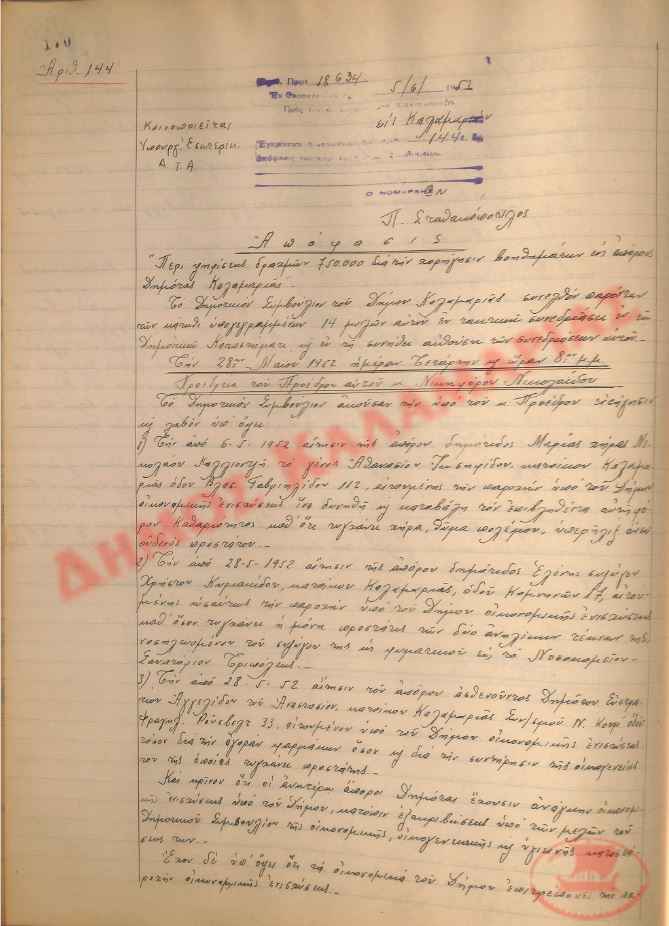 170
Αριθ. 144
Πρωτ. 18634
5/6/1952
Εν Θεσσαλονίκη
εις Καλαμαριάν
144
Κοινοποιείται
Υπουργ. Εσωτερικ.
Α. Τ. Α.
Ο ΝΟΜΑΡΧΗΣ
Π. Σταθακόπουλος
Ἀπόφασις
"Περί ψηφίσεως δραχμών 750.000 διά την χορήγησιν βοηθημάτων εις απόρους
Δημότας Καλαμαριάς.
Το Δημοτικόν Συμβούλιον του Δήμου Καλαμαριάς συνελθόν παρόντων
των κάτωθι υπογεγραμμένων 14 μελών αυτού εν τακτική συνεδριάσει εν τω
Δημοτικώ Καταστήματι κ εν τη συνήθει αιθούση των συνεδριάσεων αυτού.
Την 28ην Μαΐου 1952 ημέραν Τετάρτην κ ώραν 8ην μ.μ.
Προεδρία του Προέδρου αυτού κ. Νικηφόρου Νικολαΐδου
Το Δημοτικόν Συμβούλιον ακούσαν την υπό του κ. Προέδρου εισήγησιν
κ λαβόν υπ' όψει:
1) Την από 6-5-1952 αίτησιν της απόρου δημότιδος Μαρίας χήρας Νι-
κολάου το γένος Αθανασίου Ιωσηφίδου, κατοίκου Καλαμα-
ριάς οδού Βλασ. Γαβριηλίδου 112, αιτουμένης την παροχήν υπό του Δήμου
οικονομικής ενισχύσεως ίνα δυνηθή κ καταβάλη τον επιβληθέντα αυτή φό-
ρον Καθαριότητος καθ' ότι τυγχάνει χήρα, θύμα πολέμου, υπερήλιξ άνευ
ουδενός προστάτου.-
2) Την από 28-5-1952 αίτησιν της απόρου δημότιδος Ελένης συζύγου
Χρήστου Κυριακίδου, κατοίκου Καλαμαριάς, οδού Κομνηνών 17, αιτου-
μένης ωσαύτως την παροχήν υπό του Δήμου οικονομικής ενισχύσεως
καθ' όσον τυγχάνει η μόνη προστάτις των δύο ανηλίκων τέκνων της,
νοσηλευομένου του συζύγου της ως φυματικού εις το Νοσοκομείον-
Σανατόριον Τριπόλεως.-
3) Την από 28-5-52 αίτησιν του απόρου ασθενούντος Δημότου Ευστρα-
τίου Αγγελίδου του Αναστασίου, κατοίκου Καλαμαριάς Συν/σμού Ν. οδού
Φραγκλ. Ρούσβελτ 33, αιτουμένου υπό του Δήμου οικονομικής ενισχύσεως
τόσον διά την αγοράν φαρμάκων όσον κ διά την συντήρησιν της οικογενείας
του της οποίας τυγχάνει προστάτης.-
Και κρίνον ότι οι ανωτέρω άποροι Δημόται έχουσιν ανάγκην οικονομι-
κής ενισχύσεως υπό του Δήμου, κατόπιν εξακριβώσεως υπό των μελών του
Δημοτικού Συμβουλίου της οικονομικής, οικογενειακής κ υγιεινής καταστά-
σεως των.-
Έχον δε υπ' όψει ότι τα οικονομικά του Δήμου επιτρέπουσι την πα-
ροχήν οικονομικής ενισχύσεως.-
ΔΗΜΟΣ ΚΑΛΑΜΑΡΙΑΣ